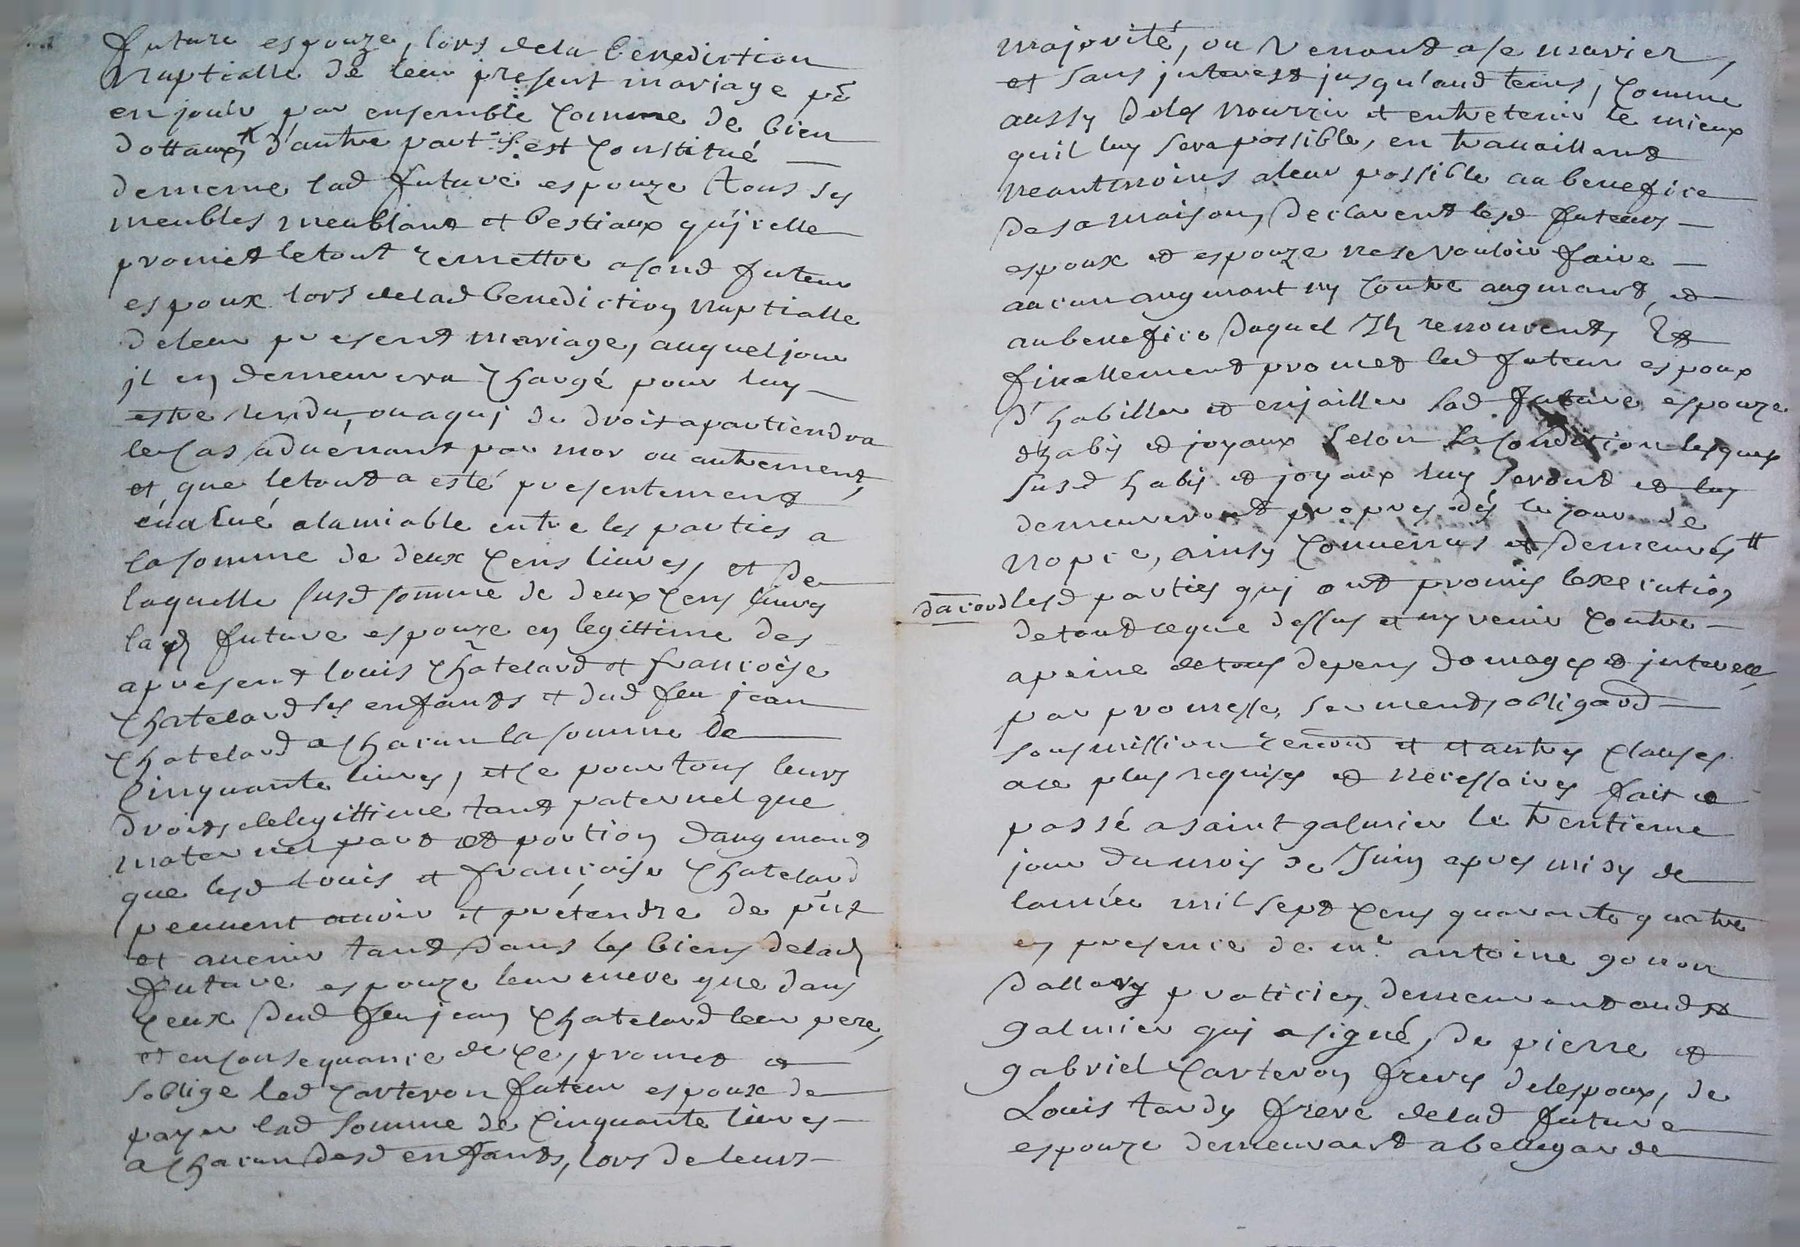 future espouze, lors dela benediction
nuptialle de leur present mariage pr̃
en jouir par ensemble comme de bien
dottaux, d'autre part s'est constitué
dememe lad future espouze tous ses
meubles meublant et bestiaux qu'jcelle
promet letout remettre asond futeur
espoux lors delad benediction nuptialle
deleur present mariage, auquel jour
jl en demeurera chargé pour luy
estre rendu, ou aquj de droit apartiendra
le cas aduenant par mor ou autrement,
et que letout a esté presentement
éualué alamiable entre les parties a
la somme de deux cens liures, et de
laquelle susd somme de deux cens liures
lad future espouze en legittime des
apresent louis chatelard et francoise
chatelard ses enfants et dud feu jean
chatelard a chacun la somme de
cinquante liures, et ce pour tous leurs
droits delegittime tant paternel que
maternel part et portion daugmand
que lesd Louis et francoise chatelard
peuuent auoir et prétendre de pñt
et auenir tant dans les biens delad
future espouze leur mere que dans
ceux dud feu jean chatelard leur pere,
et en consequance de ce, promet et
soblige led carteron futeur espoux de
payer lad somme de cinquante liures
a chacun desd enfants, lors de leurs
majorité, ou venant a se marier,
et sans juterest jusqu'aud tems, comme
aussy deles nourrir et entretenir le mieux
quil luy sera possible, en trauaillant
neantmoins aleur possible au benefice
desa maison, declarent lesd futeurs
espoux et espouze ne se vouloir faire
aucun augmant ny contre augmand, et
au benefice duquel Jls renoncent, Et
finallement promet led futeur espoux
d'habiller et enjailler lad future espouze
dhabis et joyaux selon sa condition lesquels
susd habis et joyaux luy seront et luy
demeureront propres dés le jour de
nopce, ainsy conuenus et demeurés
dacord lesd parties quj ont promis lexecution
de tout ceque dessus et ny venir contre
apeine de tous depens domages et jnterest,
par promesse, serment, obligaõn
sousmission renonõn et et autres clauses
ace plus requises et necessaires fait et
passé a saint galmier le trentieme
jour du mois de Juin apres midy de
lannée mil sept cens quarante quatre
en presence de mr. antoine gonon
dallary praticien demeurant aud st
galmier quj a signé, de pierre et
gabriel carteron freres delespoux, de
Louis tardy frere delad future
espouze demeurant a bellegarde